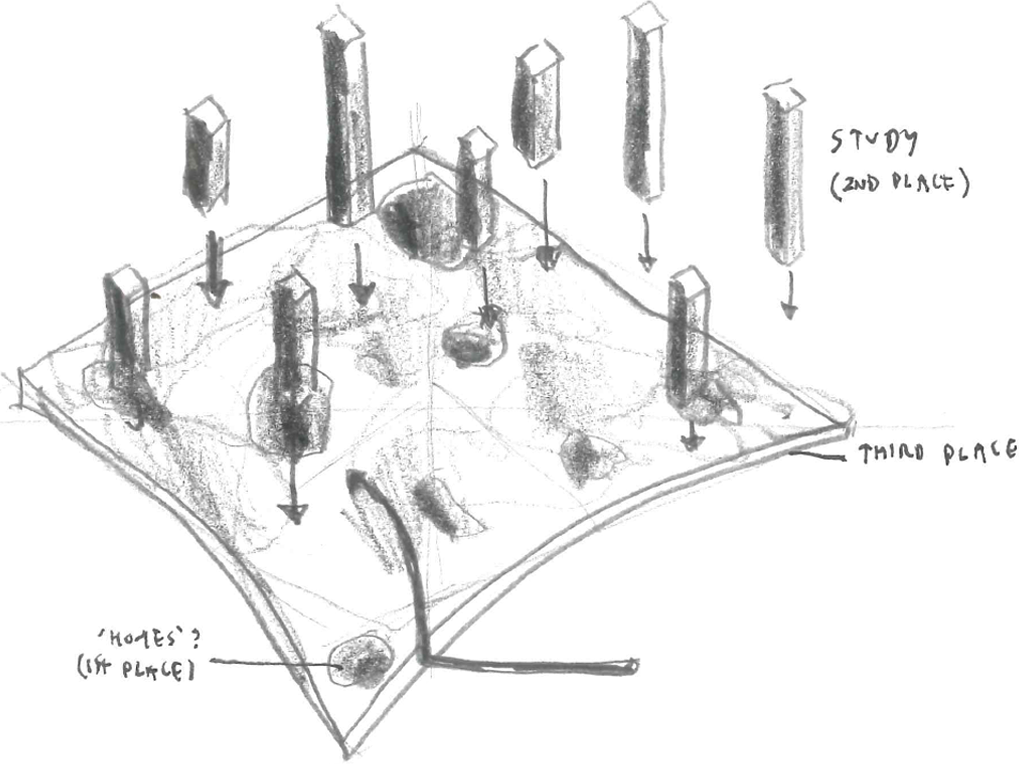 STUDY
(2ND PLACE)
THIRD PLACE
'HOMES'?
(1ST PLACE)